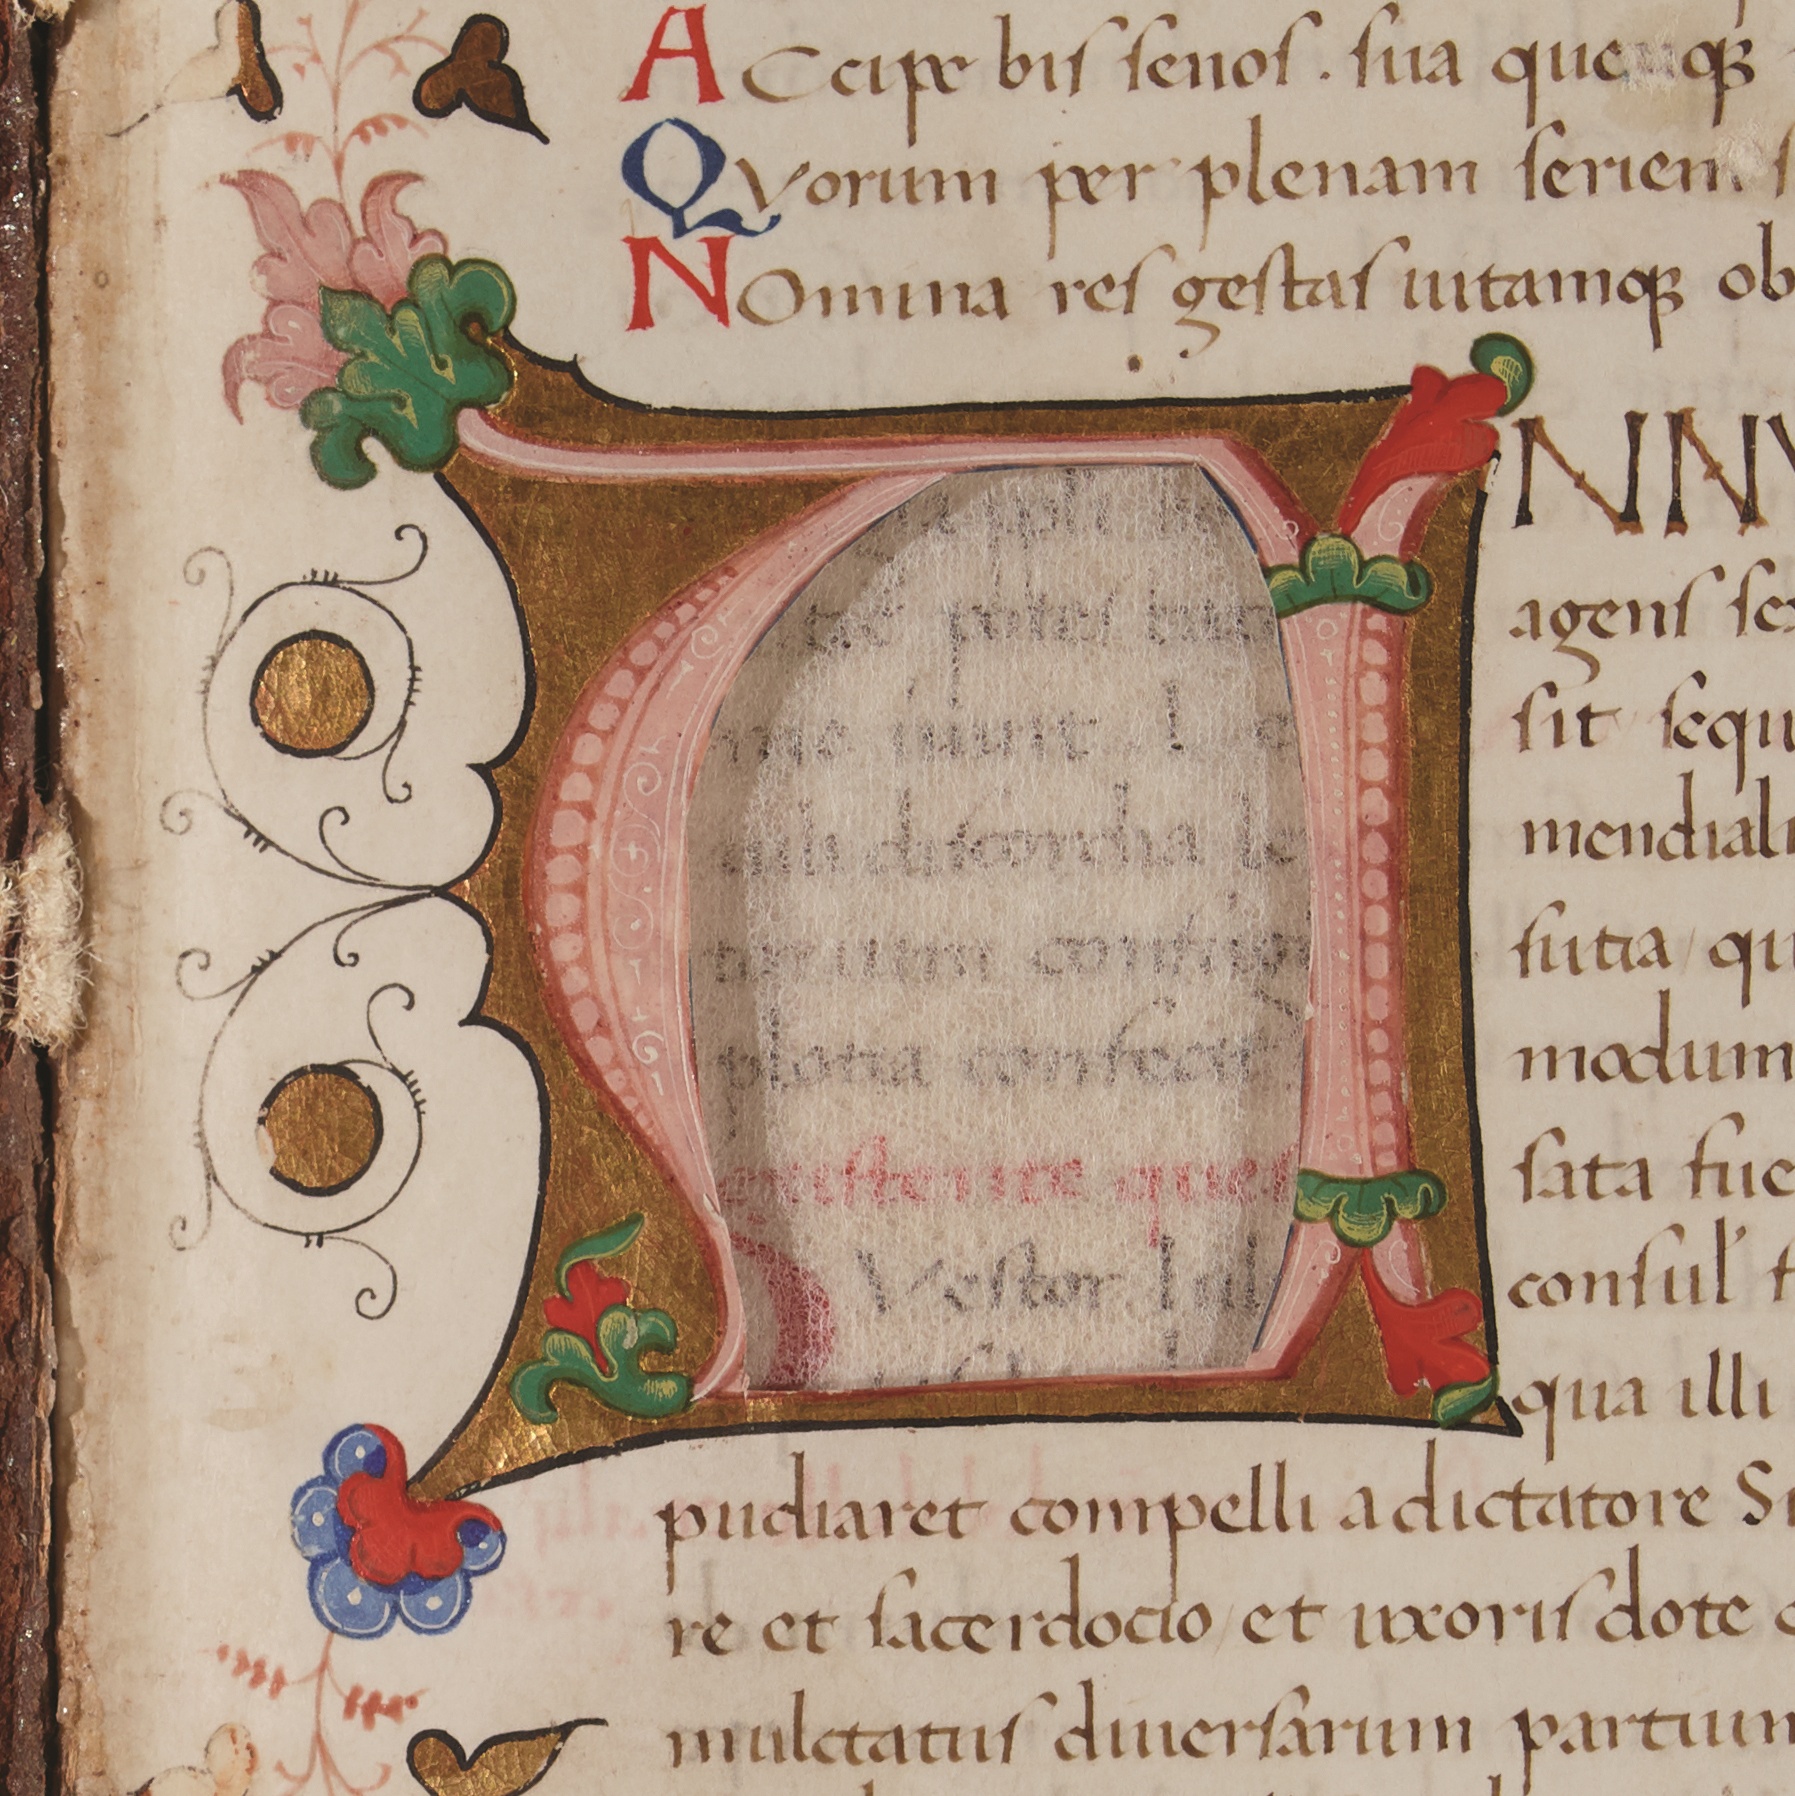 ACcipe bis senos. sua que q3
QVorum per plenam seriem
NOmina res gestas uitamq3 ob
ANNV
agens sex
sit sequ
mendiali
sutia qu
modum
sata fue
consul
qua illi
pudiaret compelli a dictatore
re et sacerdocio et uxoris dote
mulctatus diuersarum partium
potes
discordia
confecit
existente ques
Vestor